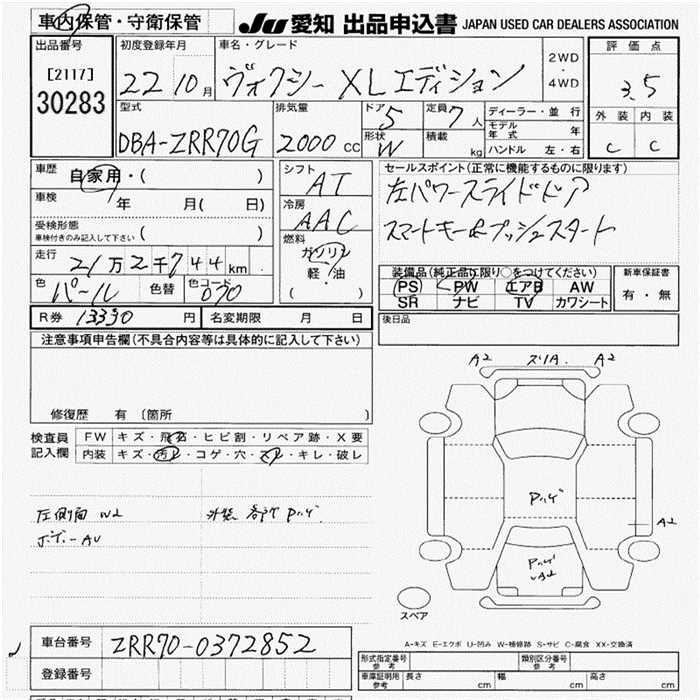 車内保管・守衛保管
JU 愛知 出品申込書 JAPAN USED CAR DEALERS ASSOCIATION
出品番号 [2117] 30283
初度登録年月 22 10月
車名・グレード ヴォクシー XLエディション
2WD・4WD
評価点 3.5
外装 内装
C C
型式 DBA-ZRR70G
排気量 2000 CC
ドア 5
定員 7人
形状 W
積載 kg
ディーラー・並行
モデル年式 年
ハンドル 左・右
車歴 自家用・( )
車検 年 月( 日)
受検形態 ( )
車検付きのみ記入して下さい
走行 21万2千744km
色 パール 色替 色コード 070
シフト AT
冷房 AAC
燃料 ガソリン
軽・油
( )
セールスポイント(正常に機能するものに限ります)
左パワースライドドア
スマートキー&プッシュスタート
装備品(純正品に限り○をつけてください)
PS PW エアB AW
SR ナビ TV カワシート
新車保証書
有・無
後日品
R券 13390円 名変期限 月 日
注意事項申告欄(不具合内容等は具体的に記入して下さい)
修復歴 有 〔箇所 〕
検査員記入欄
FW キズ・飛石・ヒビ割・リペア跡・X要
内装 キズ・汚レ・コゲ・穴・スレ・キレ・破レ
左側面 W2
ボデー AU
外装 各所
A2 A2
A2
スペア
A-キズ E-エクボ U-凹み W-補修跡 S-サビ C-腐食 XX-交換済
車台番号 ZRR70-0372852
登録番号
形式指定番号 参考
類別区分番号 参考
車庫証明用 参考 長さ cm 幅 cm 高さ cm